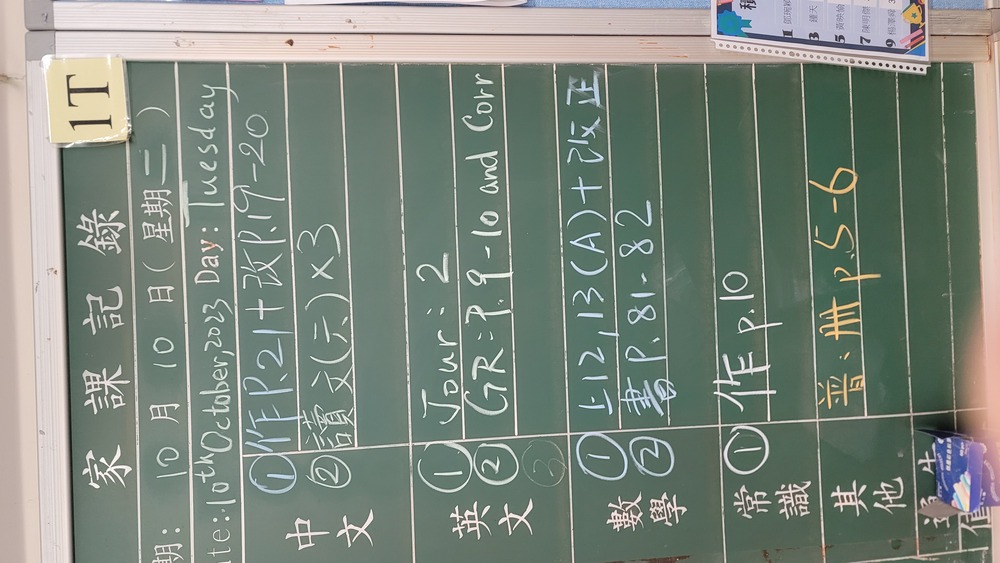 1T
家課記錄
期: 10月10日(星期二)
ate: 10th October, 2023 Day: Tuesday
中文
① 作P.21+改P.19-20
② 讀文(六)×3
英文
① Jour: 2
② GR: P.9-10 and Corr
③
數學
① 上12,13(A)+改正
② 書P.81-82
常識
① 作 p.10
其他
普: 冊 p.5-6